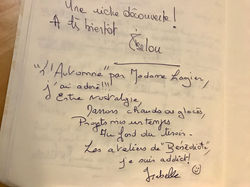 Une riche découverte !
A très bientôt
"L'Automne" par Madame
j'ai adoré !!!
Entre nostalgie,
chaudes ou glacées,
Projets mis un temps
Au fond du tiroir.
Les ateliers de "Bénédicte"
je suis addict !
Isabelle